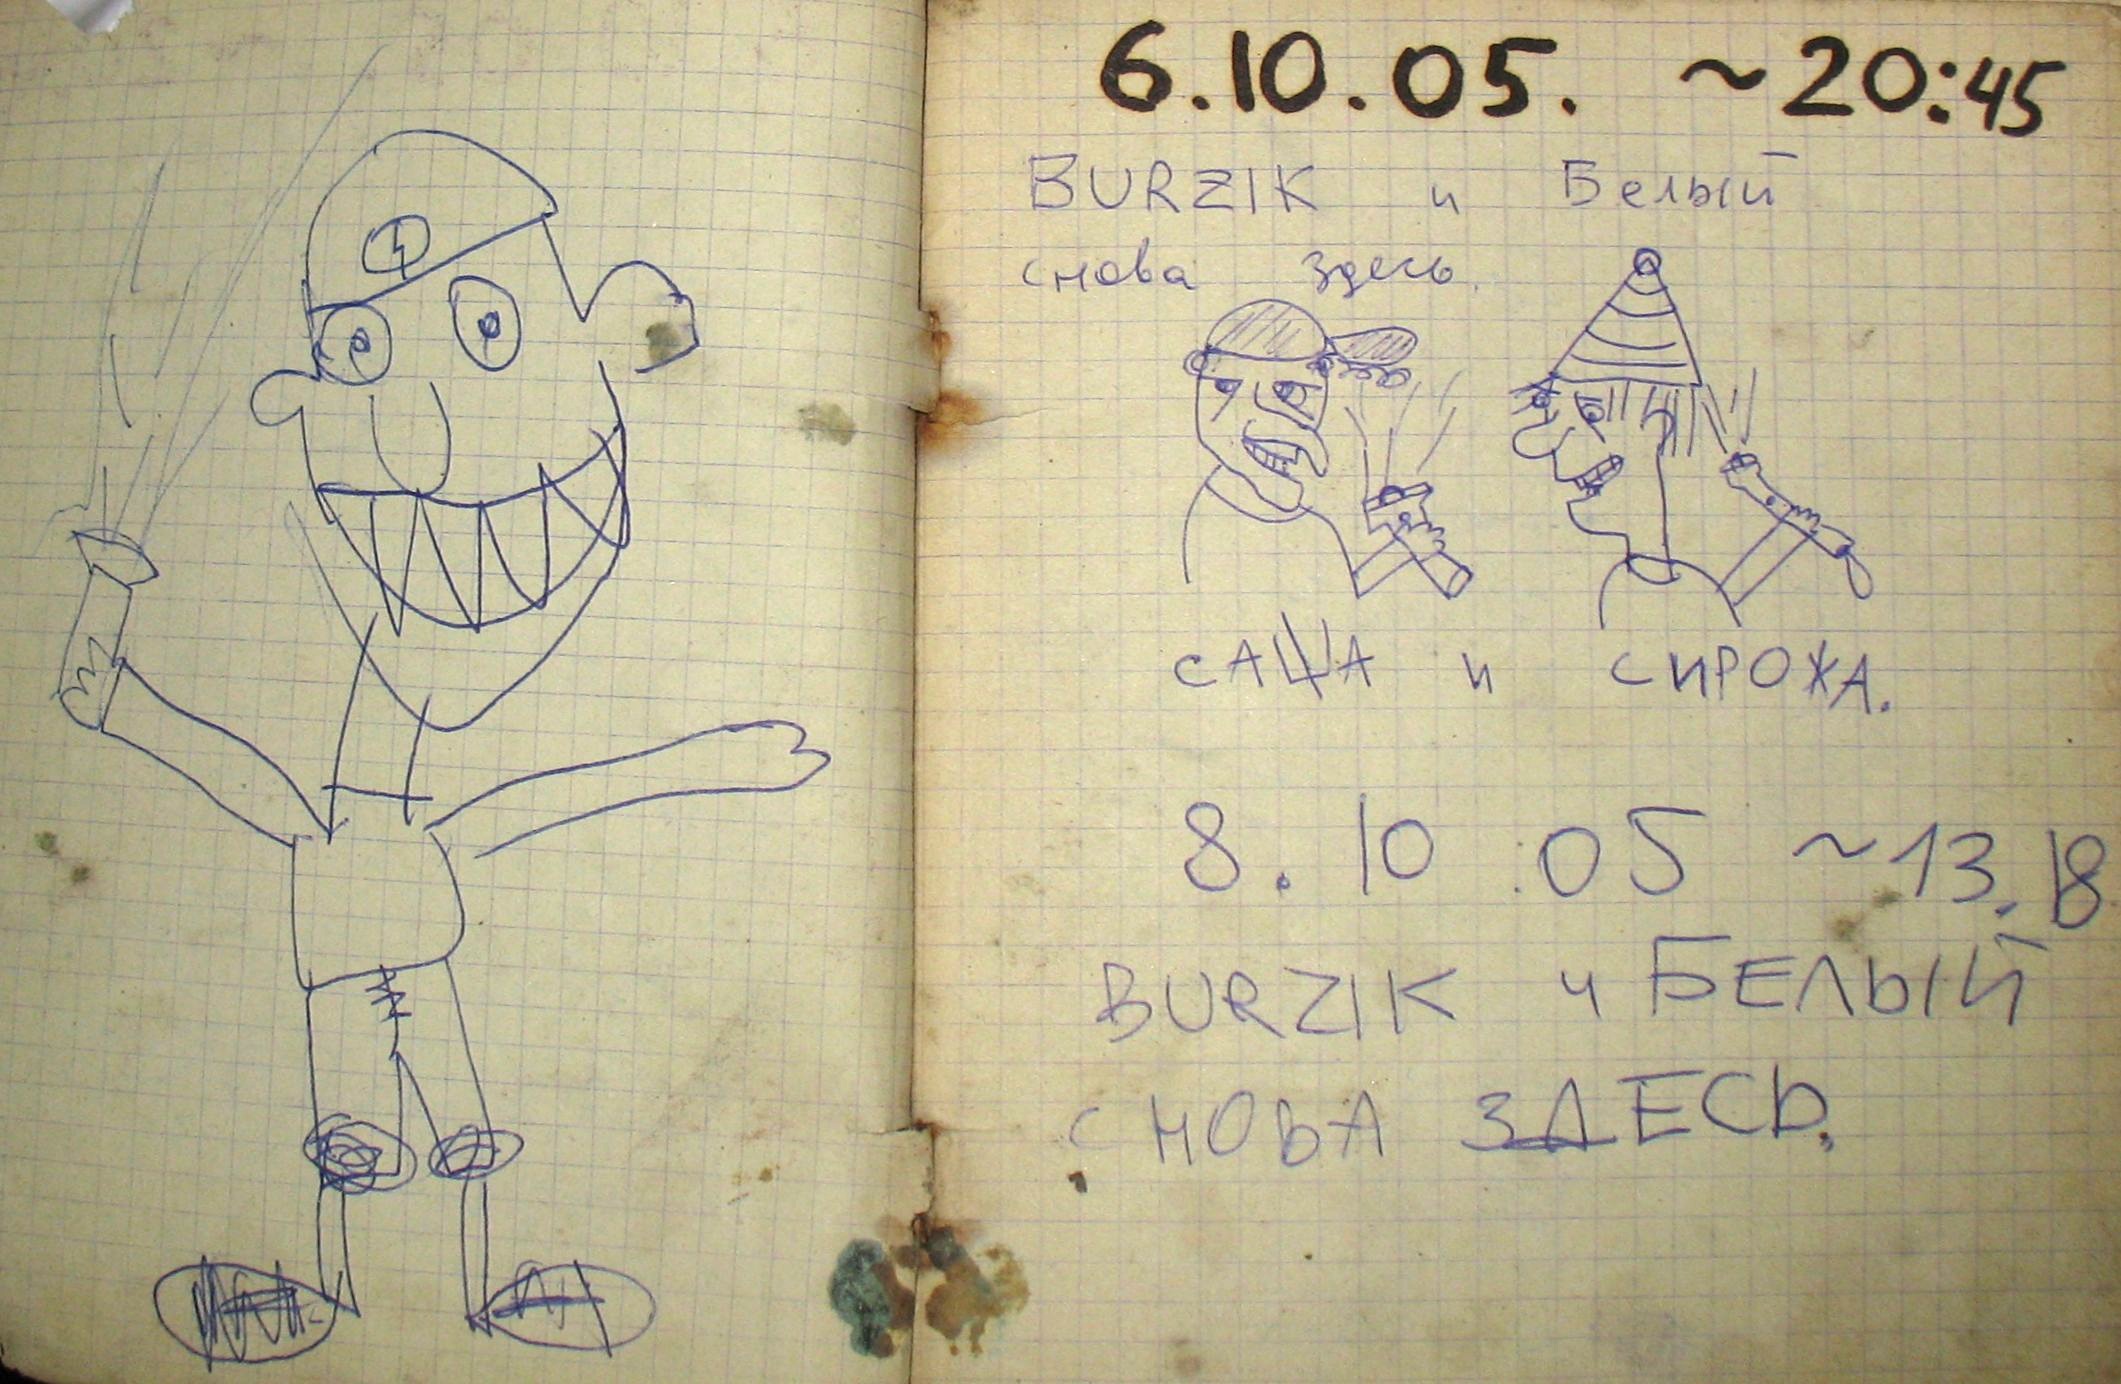 6.10.05. ~20:45
BURZIK и Белый
снова здесь.
САША и СИРОЖА.
8.10.05 ~13.18
BURZIK и БЕЛЫЙ
СНОВА ЗДЕСЬ.